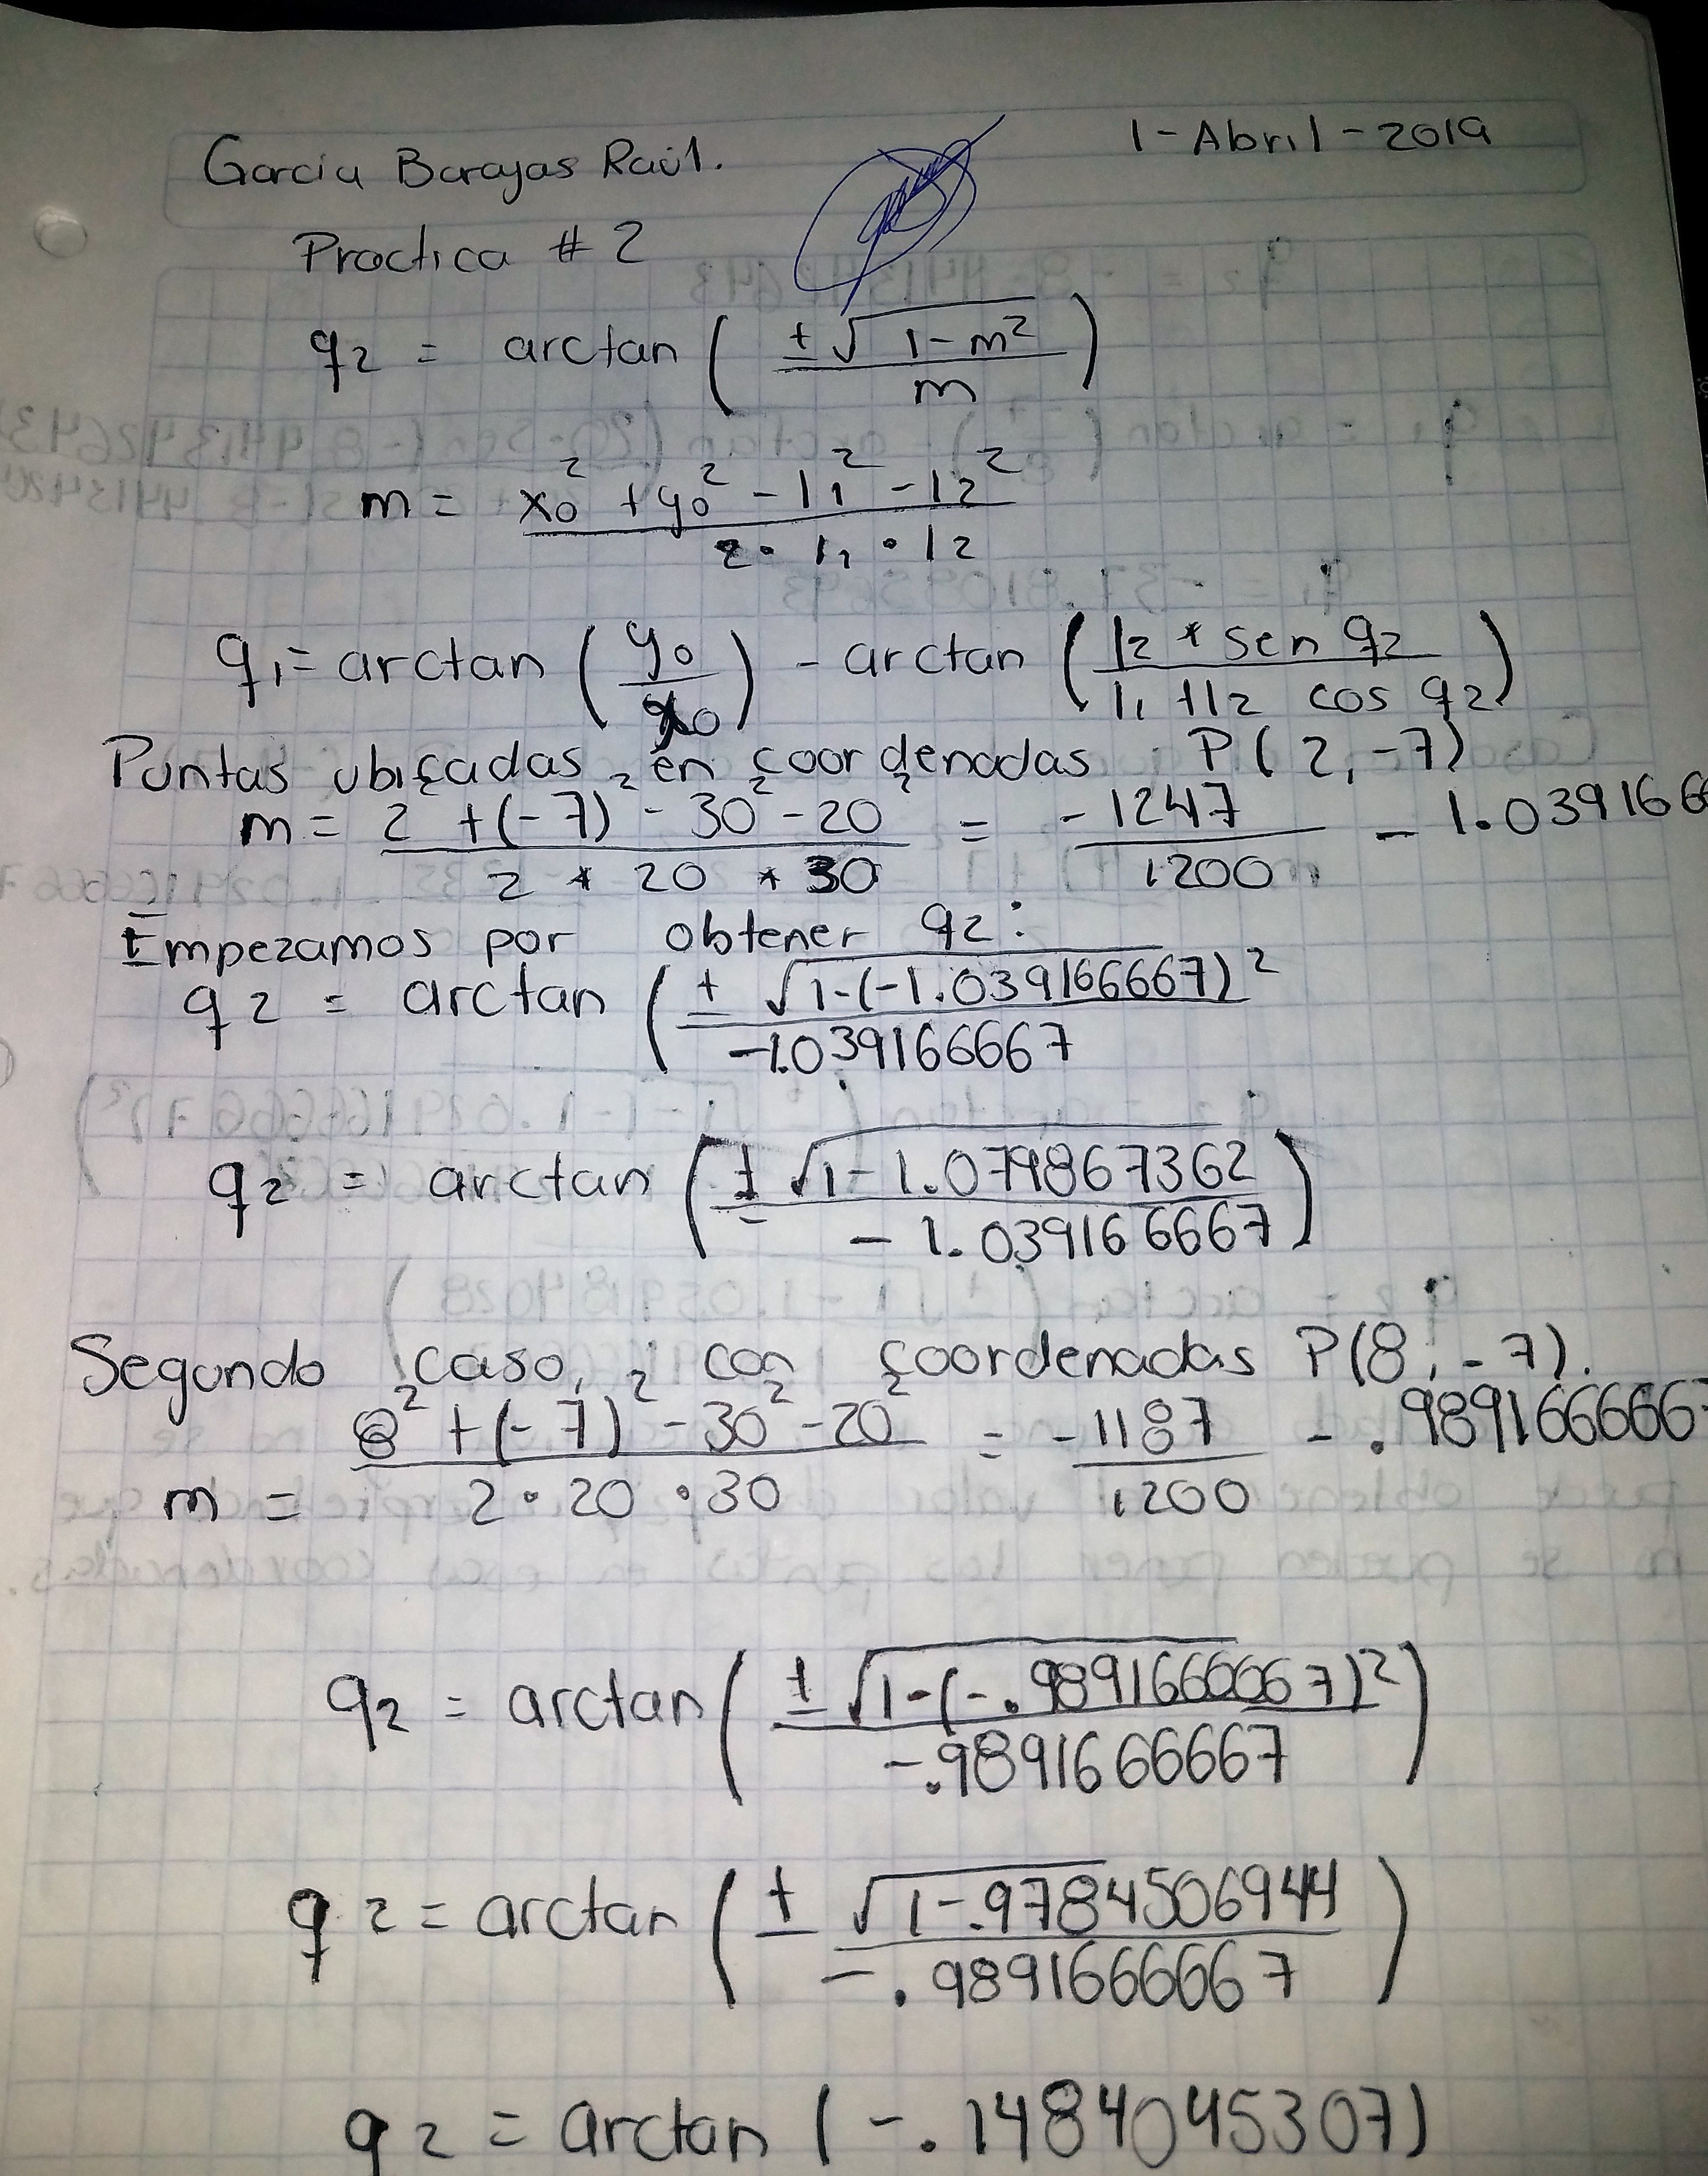 Garcia Barajas Raúl. 1-Abril-2019
Practica # 2
q2 = arctan ( ±√1-m² / m )
m = x0² + y0² - l1² - l2² / 2 · l1 · l2
q1 = arctan ( y0 / x0 ) - arctan ( l2 * sen q2 / l1 + l2 cos q2 )
Puntas ubicadas en coordenadas P(2, -7)
m = 2² + (-7)² - 30² - 20² / 2 * 20 * 30 = -1247 / 1200 - 1.0391666
Empezamos por obtener q2:
q2 = arctan ( ± √1-(-1.039166667)² / -1.039166667
q2 = arctan ( ± √1-1.079867362 / -1.039166667 )
Segundo caso, con coordenadas P(8, -7).
m = 8² + (-7)² - 30² - 20² / 2 · 20 · 30 = -1187 / 1200 - .9891666667
q2 = arctan ( ± √1-(-.9891666667)² / -.9891666667 )
q2 = arctan ( ± √1-.9784506944 / -.9891666667 )
q2 = arctan (-.1484045307)